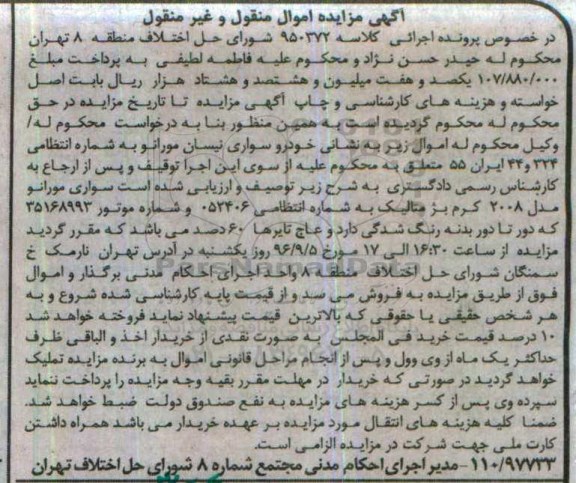 آگهی مزایده اموال منقول و غیر منقول
در خصوص پرونده اجرائی کلاسه ۹۵۰۳۷۲ شورای حل اختلاف منطقه ۸ تهران
محکوم له حیدر حسن نژاد و محکوم علیه فاطمه لطیفی به پرداخت مبلغ
۱۰۷/۸۸۰/۰۰۰ یکصد و هفت میلیون و هشتصد و هشتاد هزار ریال بابت اصل
خواسته و هزینه های کارشناسی و چاپ آگهی مزایده تا تاریخ مزایده در حق
محکوم له محکوم گردیده است به همین منظور بنا به درخواست محکوم له/
وکیل محکوم له اموال زیر به نشانی خودرو سواری نیسان مورانو به شماره انتظامی
۳۲۴ و۴۴ ایران ۵۵ متعلق به محکوم علیه از سوی این اجرا توقیف و پس از ارجاع به
کارشناس رسمی دادگستری به شرح زیر توصیف و ارزیابی شده است سواری مورانو
مدل ۲۰۰۸ کرم بژ متالیک به شماره انتظامی ۰۵۲۴۰۶ و شماره موتور ۳۵۱۶۸۹۹۳
که دور تا دور بدنه رنگ شدگی دارد و عاج تایرها ۶۰ دصد می باشد که مقرر گردید
مزایده از ساعت ۱۶:۳۰ الی ۱۷ مورخ ۹۶/۹/۵ روز یکشنبه در آدرس تهران نارمک خ
سمنگان شورای حل اختلاف منطقه ۸ واحد اجرای احکام مدنی برگذار و اموال
فوق از طریق مزایده به فروش می سبد و از قیمت پایه کارشناسی شده شروع و به
هر شخص حقیقی یا حقوقی که بالاترین قیمت پیشنهاد نماید فروخته خواهد شد
۱۰ درصد قیمت خرید فی المجلس به صورت نقدی از خریدار اخذ و الباقی ظرف
حداکثر یک ماه از وی وول و پس از انجام مراحل قانونی اموال به برنده مزایده تملیک
خواهد گردید در صورتی که خریدار در مهلت مقرر بقیه وجه مزایده را پرداخت ننماید
سپرده وی پس از کسر هزینه های مزایده به نفع صندوق دولت ضبط خواهد شد.
ضمنا کلیه هزینه های انتقال مورد مزایده بر عهده خریدار می باشد همراه داشتن
کارت ملی جهت شرکت در مزایده الزامی است.
۱۱۰/۹۷۷۳۳ - مدیر اجرای احکام مدنی مجتمع شماره ۸ شورای حل اختلاف تهران